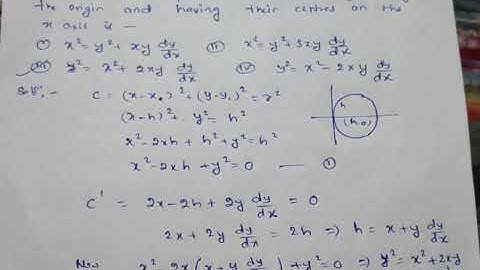 the origin and having their centres on the
x axis is —
(i) x² = y² + xy dy/dx (ii) x² = y² + 3xy dy/dx
(iii) y² = x² + 2xy dy/dx (iv) y² = x² - 2xy dy/dx
Soln,-
C = (x-x₀)² + (y-y₀)² = r²
(x-h)² + y² = h²
h
(h,0)
x² - 2xh + h² + y² = h²
x² - 2xh + y² = 0 —
C' = 2x - 2h + 2y dy/dx = 0
2x + 2y dy/dx = 2h ⇒ h = x + y dy/dx
Now x² - 2x(x + y dy/dx) + y² = 0 ⇒ y² = x² + 2xy